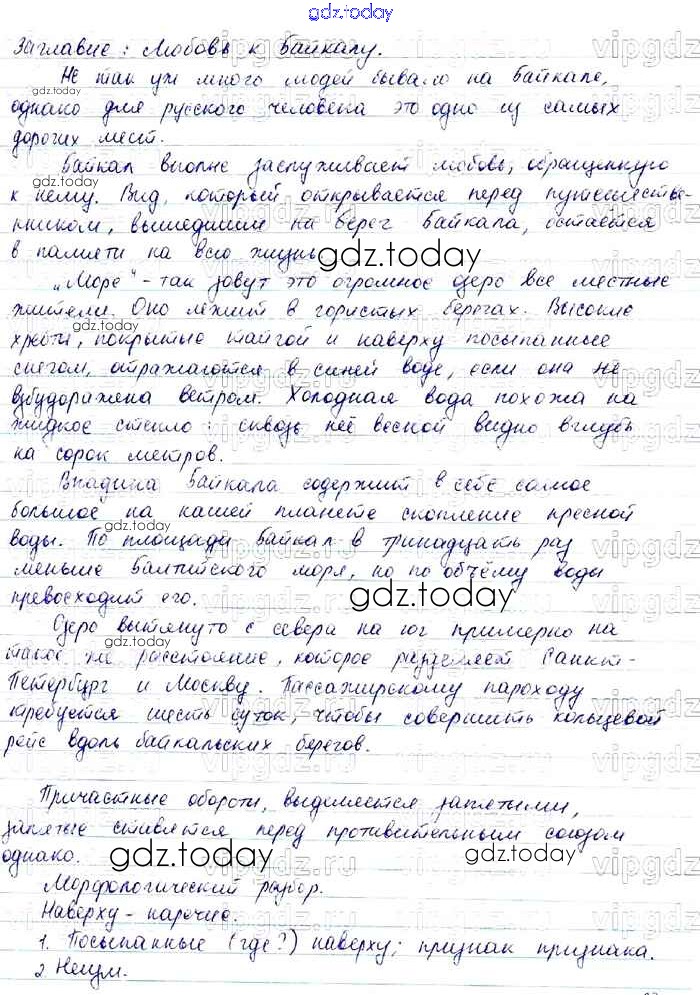 gdz.today
Заглавие: Любовь к Байкалу.
Не так уж много людей бывало на Байкале,
однако для русского человека это одно из самых
дорогих мест.
Байкал вполне заслуживает любовь, обращенную
к нему. Вид, который открывается перед путешестве-
нником, вышедшим на берег Байкала, остаётся
в памяти на всю жизнь
„Море" - так зовут это огромное озеро все местные
жители. Оно лежит в гористых берегах. Высокие
хребты, покрытые тайгой и наверху посыпанные
снегом, отражаются в синей воде, если она не
взбудоражена ветром. Холодная вода похожа на
жидкое стекло: сквозь неё весной видно вглубь
на сорок метров.
Впадина Байкала содержит в себе самое
большое на нашей планете скопление пресной
воды. По площади Байкал в тринадцать раз
меньше Балтийского моря, но по объёму воды
превосходит его.
Озеро вытянуто с севера на юг примерно на
такое же расстояние, которое разделяет Санкт-
Петербург и Москву. Пассажирскому пароходу
требуется шесть суток, чтобы совершить кольцевой
рейс вдоль байкальских берегов.
Причастные обороты, выделяется запятыми,
запятые ставятся перед противительным союзом
однако.
Морфологический разбор.
Наверху - наречие.
1. Посыпанные (где?) наверху; признак признака.
2. Неизм.